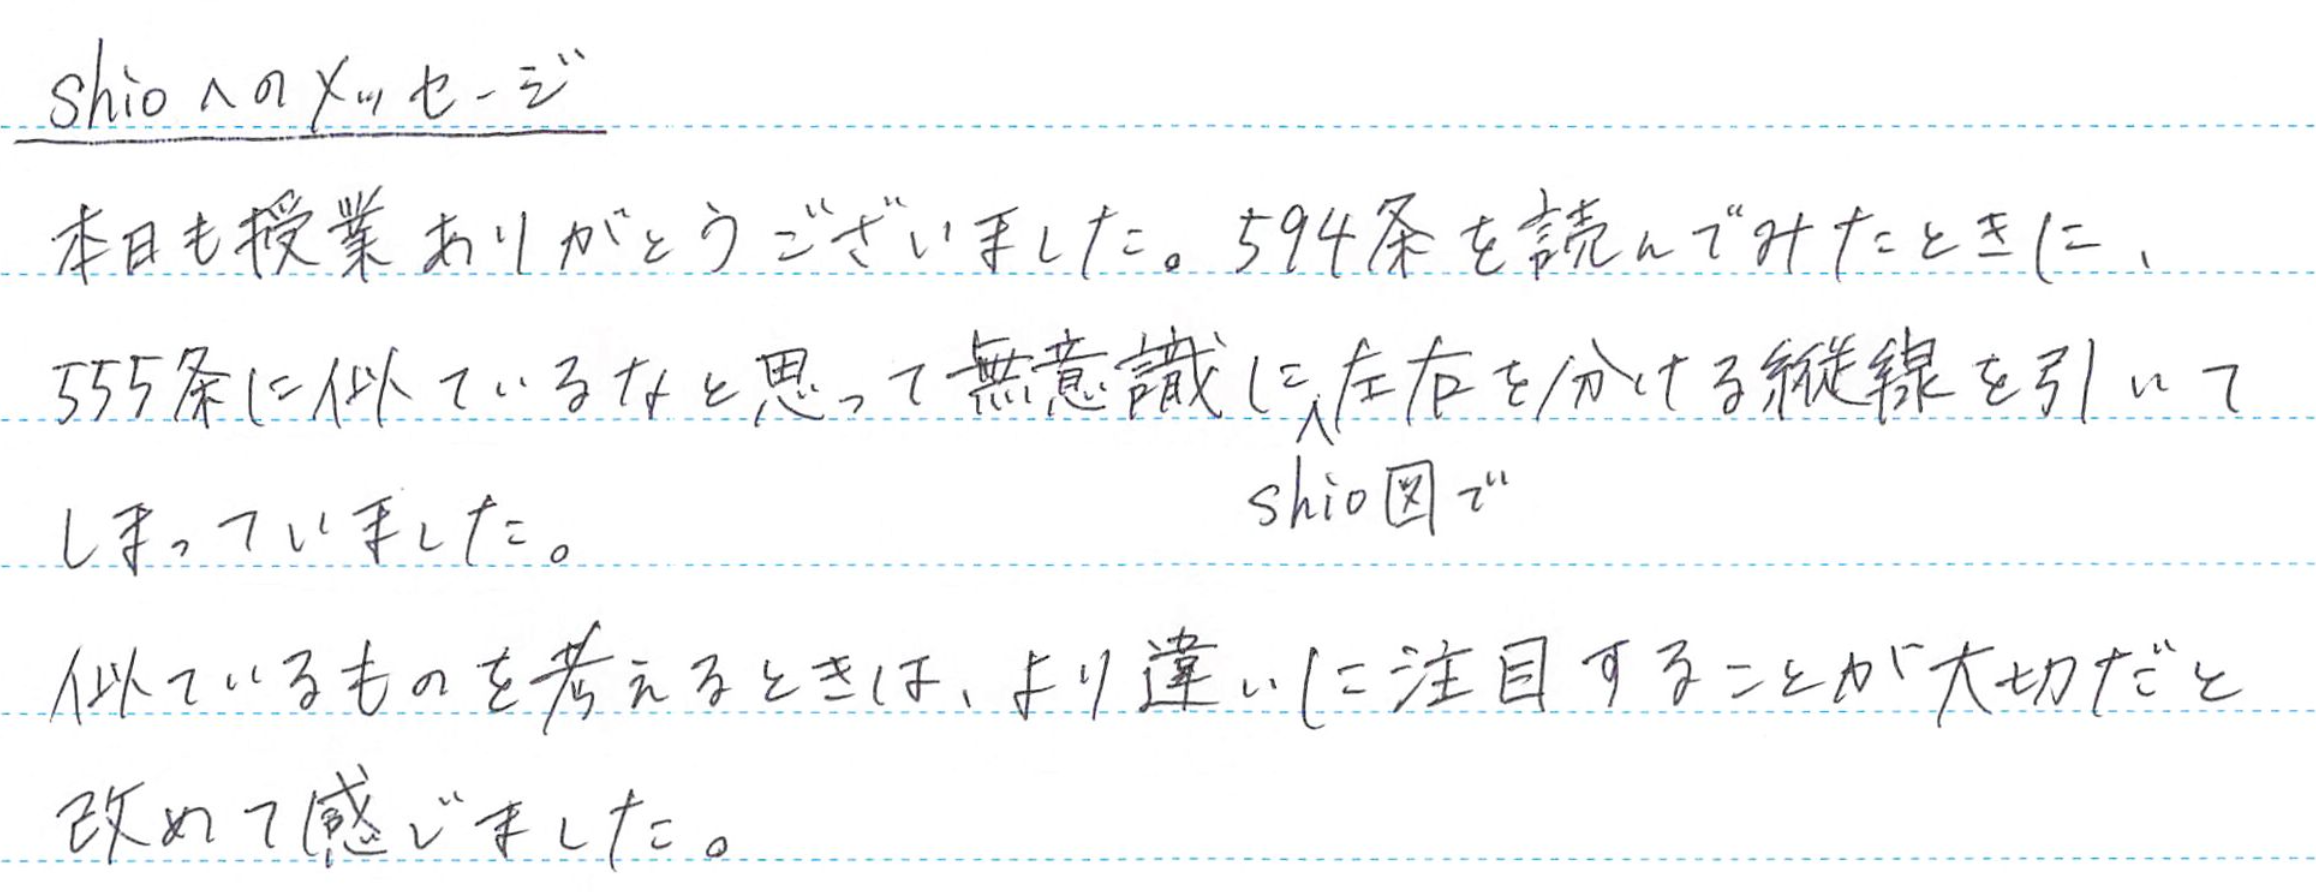 shioへのメッセージ
本日も授業ありがとうございました。594条を読んでみたときに、
555条に似ているなと思って無意識に左右を分ける縦線を引いて
shio図で
しまっていました。
似ているものを考えるときは、より違いに注目することが大切だと
改めて感じました。